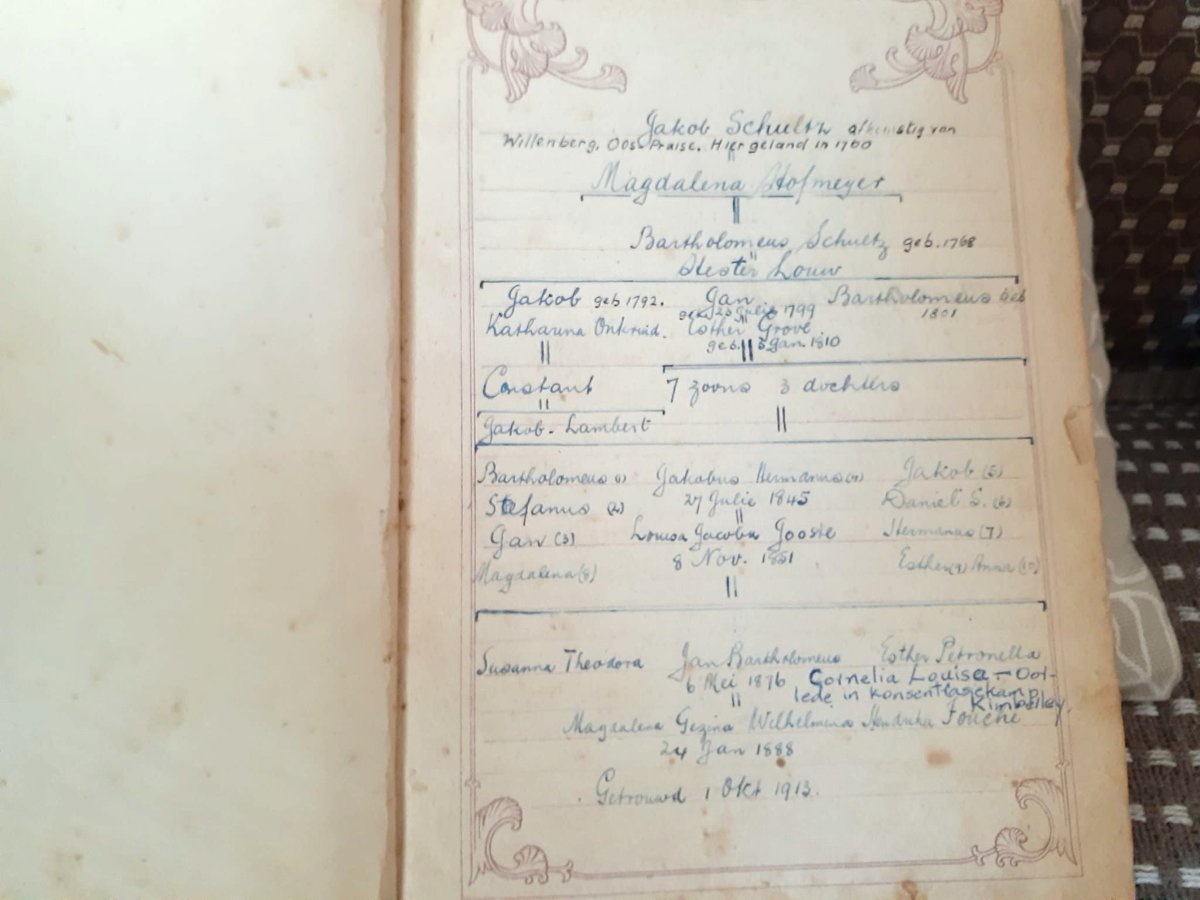 Jakob Schultz afkomstig van
Willenberg, Oos Pruise. Hier geland in 1760
Magdalena Hofmeyer
Bartholomeus Schultz geb. 1768
Hester Louw
Jakob geb 1792. Jan Bartholomeus Geb
geb 23 Julie 1799 1801
Katharina Onkruid. Esther Grove
geb. 5 Jan. 1810
Constant 7 zoons 3 dochters
Jakob-Lambert
Bartholomeus (1) Jakobus Hermanus (4) Jakob (5)
Stefanus (2) 27 Julie 1845 Daniel S. (6)
Jan (3) Louisa Jacoba Gooste Hermanus (7)
Magdalena (8) 8 Nov. 1851 Esther (9) Anna (10)
Susanna Theodora Jan Bartholomeus Esther Petronella
6 Mei 1876 Cornelia Louisa - Oor-
lede in konsentrasiekamp
Kimberley
Magdalena Gezina Wilhelmina Hendrika Fouché
24 Jan 1888
Getrouwd 1 Okt 1913.